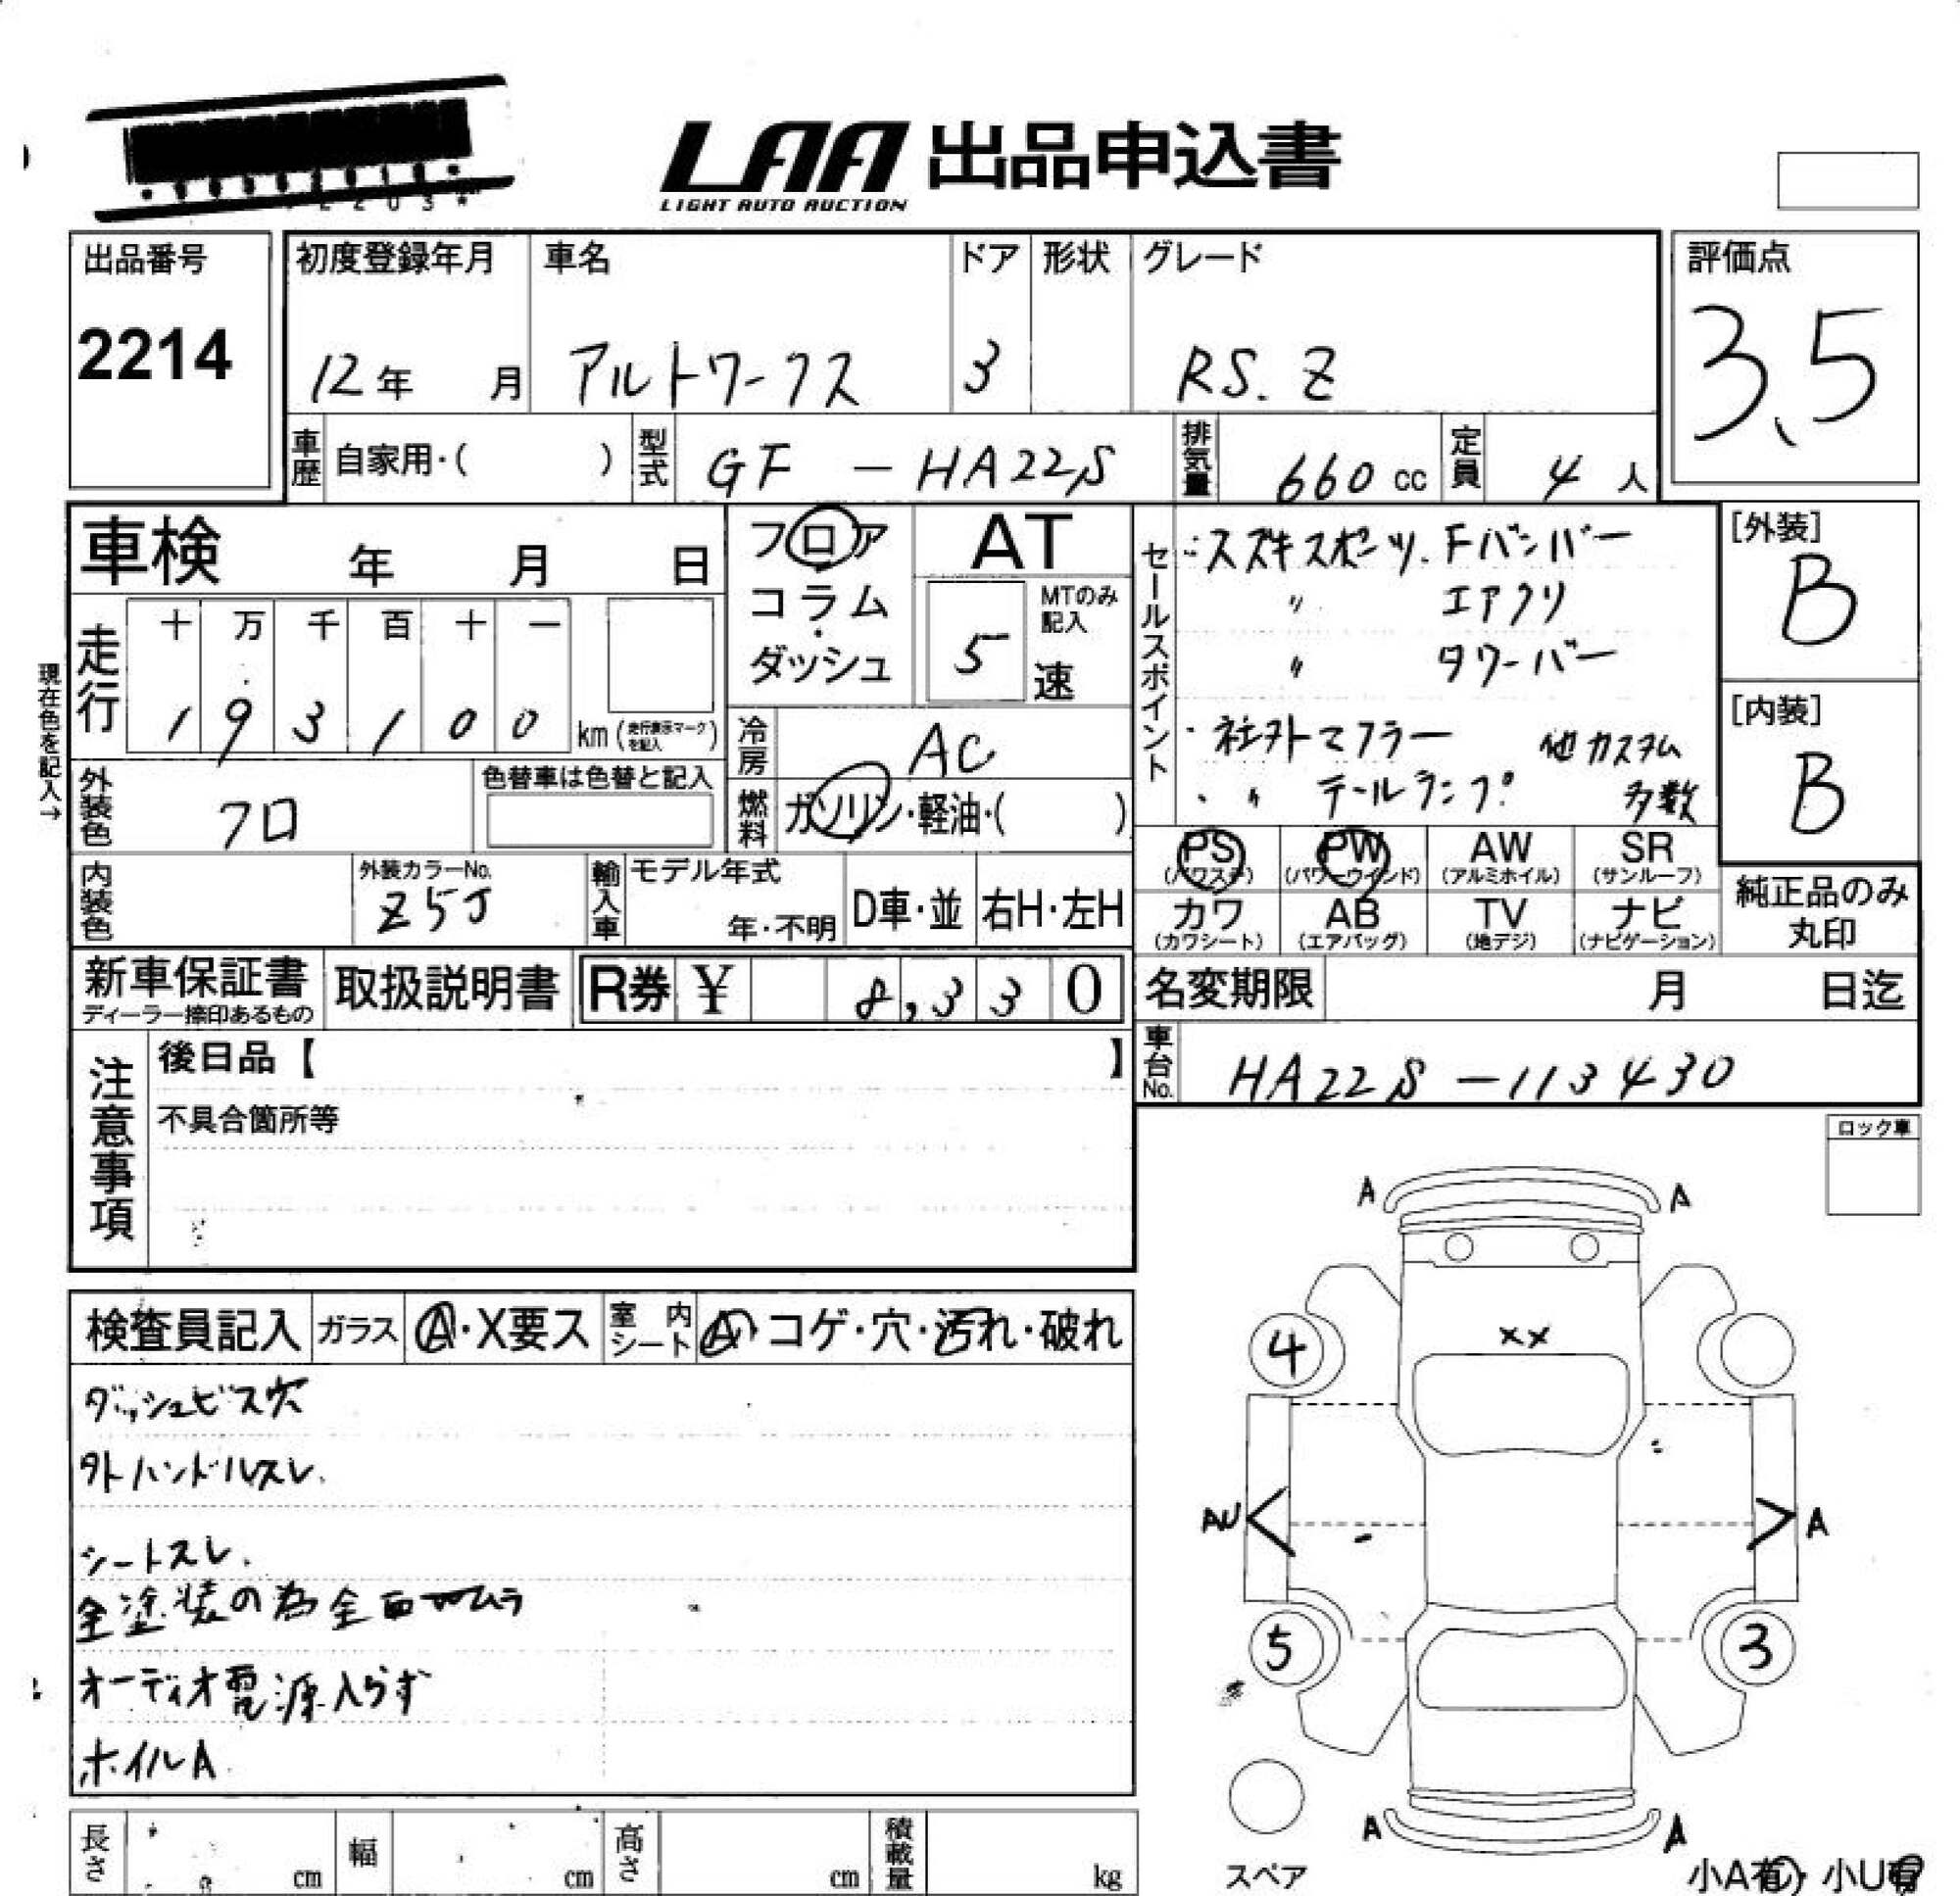 LAA 出品申込書
LIGHT AUTO AUCTION
出品番号
2214
初度登録年月 車名 ドア 形状 グレード
12年 月 アルトワークス 3 RS.Z
評価点
3.5
車歴 自家用・( ) 型式 GF - HA22S 排気量 660 cc 定員 4 人
車検 年 月 日
フロア
コラム
ダッシュ
AT
5 速
MTのみ記入
走行 十 万 千 百 十 一
1 9 3 1 0 0 km (走行表示マークを記入)
現在色を記入→
冷房 AC
燃料 ガソリン・軽油・( )
外装色 クロ
色替車は色替と記入
内装色
外装カラーNo.
Z5J
輸入車 モデル年式
年・不明 D車・並 右H・左H
セールスポイント
・スズキスポーツ. Fバンパー
〃 エアクリ
〃 タワーバー
・社外マフラー 他カスタム
・〃 テールランプ 多数
[外装]
B
[内装]
B
PS (パワステ) PW (パワーウインド) AW (アルミホイル) SR (サンルーフ)
カワ (カワシート) AB (エアバッグ) TV (地デジ) ナビ (ナビゲーション)
純正品のみ
丸印
新車保証書
ディーラー捺印あるもの
取扱説明書 R券 ¥ 8,330
名変期限 月 日迄
車台No. HA22S-113430
注意事項
後日品【 】
不具合箇所等
ロック車
検査員記入 ガラス A・X要ス 室内シート A・コゲ・穴・汚れ・破れ
ダッシュビス穴
外ハンドルスレ.
シートスレ.
全塗装の為全面ムラ
オーディオ電源入らず
ホイルA
A A
XX
4
AU A
5 3
A A
スペア
小A有・小U有
長さ cm 幅 cm 高さ cm 積載量 kg